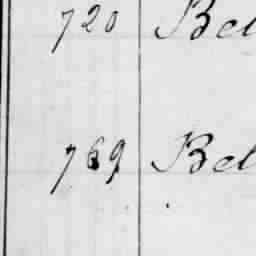 720 Bel
769 Bel